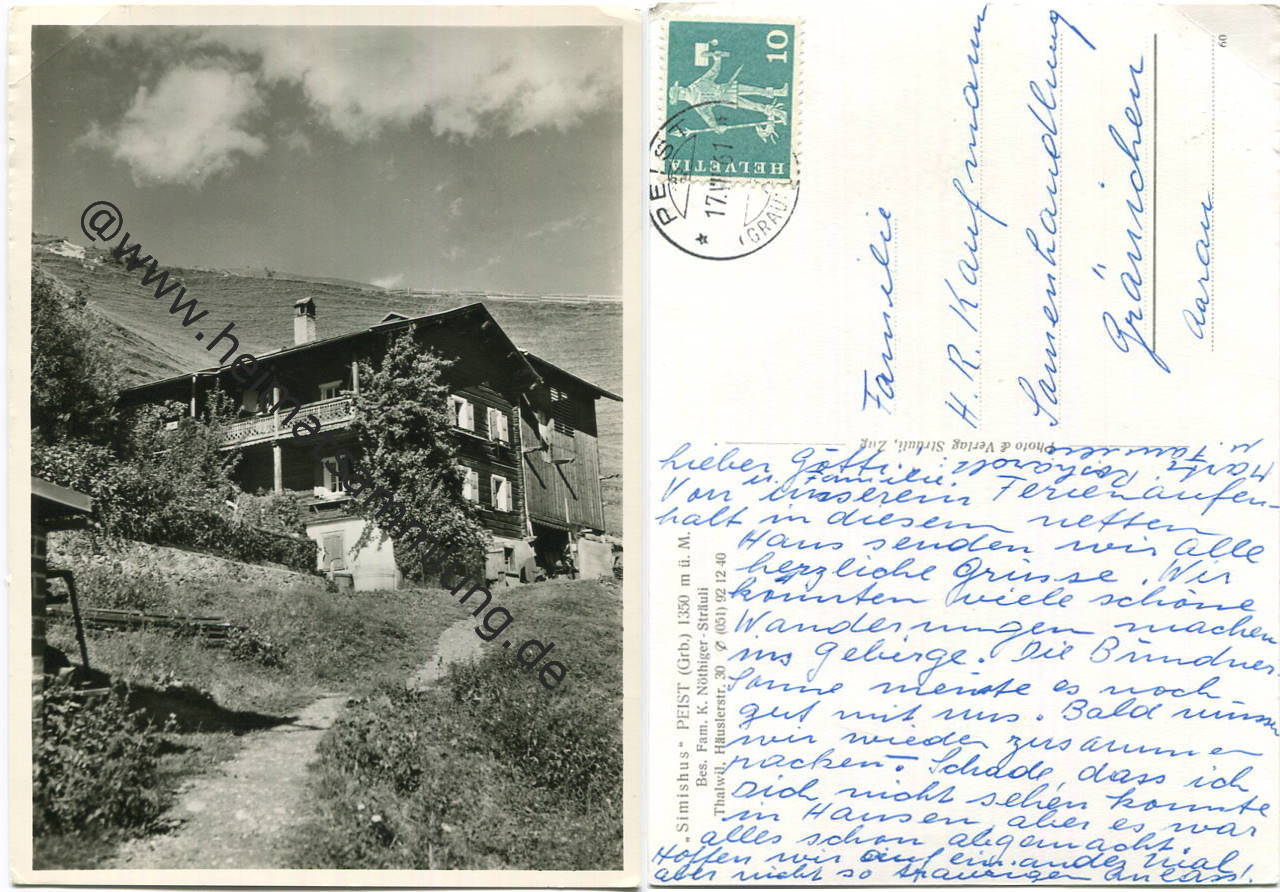 @www.heimatsammlung.de
10
HELVETIA
PEIST
17.VII.61
(GRAUB
Familie
H. R. Kaufmann
Samenhandlung
Gränichen
Aarau
60
Photo & Verlag Sträuli, Zug
„Simishus" PEIST (Grb.) 1350 m ü. M.
Bes. Fam. K. Nöthiger-Sträuli
Thalwil, Häuslerstr. 30 ✆ (051) 92 12 40
Lieber Götti,
u. Familie.
Von unserem Ferienaufen-
halt in diesem netten
Haus senden wir alle
herzliche Grüsse. Wir
könnten viele schöne
Wanderungen machen
ins Gebirge. Die Bündner
Sonne meinte es noch
gut mit uns. Bald müssen
wir wieder zusammen
packen. Schade, dass ich
dich nicht sehen konnte
in Hausen aber es war
alles schon abgemacht.
Hoffen wir auf ein ander Mal
aber nicht so traurigen Anlass!